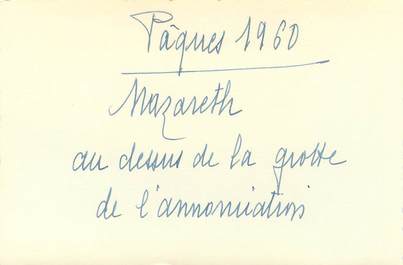 Pâques 1960
Nazareth
au dessus de la grotte
de l'annonciation